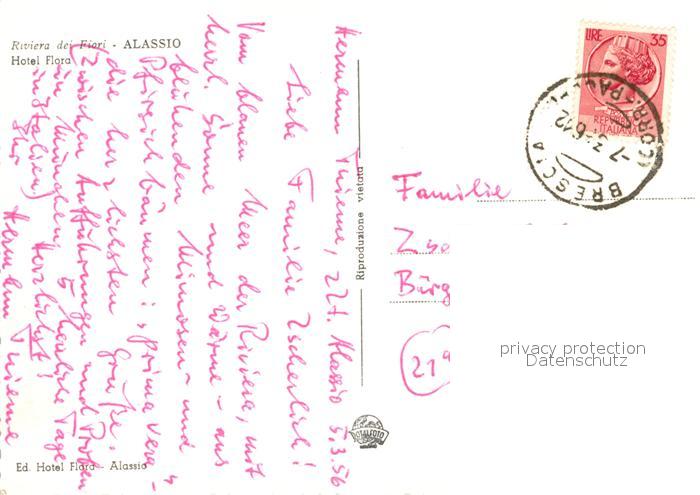 Riviera dei Fiori - ALASSIO
Hotel Flora
Hermann Thieme, z Zt. Alassio 5.3.56
Liebe Familie Zscherlich!
Vom blauen Meer der Riviera, mit
herrl. Sonne und Wärme - aus
blühenden Mimosen- und
Pfirsichbäumen: "prima vera"
die herzlichsten Grüße.
(Zwischen Aufführungen und Proben
in München 5 herrliche Tage
in Italien) Herzlichst!
Ihr
Hermann Thieme
Ed. Hotel Flora - Alassio
Riproduzione vietata
LIRE 35
REPUBBLICA
ITALIANA
BRESCIA
-7.3.56.12
Familie
Bürg
privacy protection
Datenschutz